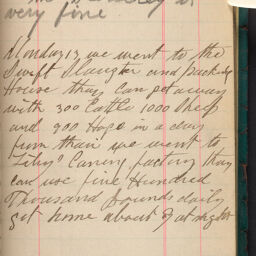 very fine
Monday 13 we went to the
Swift Slaughter and packing
House thay can put away
with 300 Cattle 1000 Sheep
and 900 Hogs in a day
from thair we went to
Libys Canery factory thay
can use five Hundred
Thousand pounds daily
got home about 9 at night